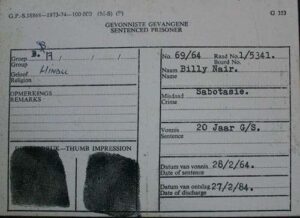 G.P.-S.
G 353
GEVONNISTE GEVANGENE
SENTENCED PRISONER
B.
Groep A
Group
Geloof HINDU
Religion
OPMERKINGS
REMARKS
THUMB IMPRESSION
No. 69/64 Raad No. 1/5341.
Board No.
Naam Billy Nair.
Name
Misdaad Sabotasie.
Crime
Vonnis 20 Jaar G/S.
Sentence
Datum van vonnis 28/2/64.
Date of sentence
Datum van ontslag 27/2/84.
Date of discharge